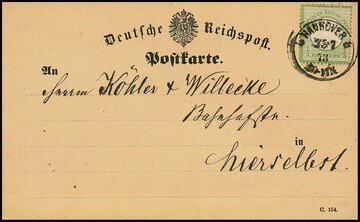 Deutsche Reichspost.
Postkarte.
HANNOVER
An
Herrn Köhler & Willecke
Bahnhofstr.
in
hierselbst.
C. 154.